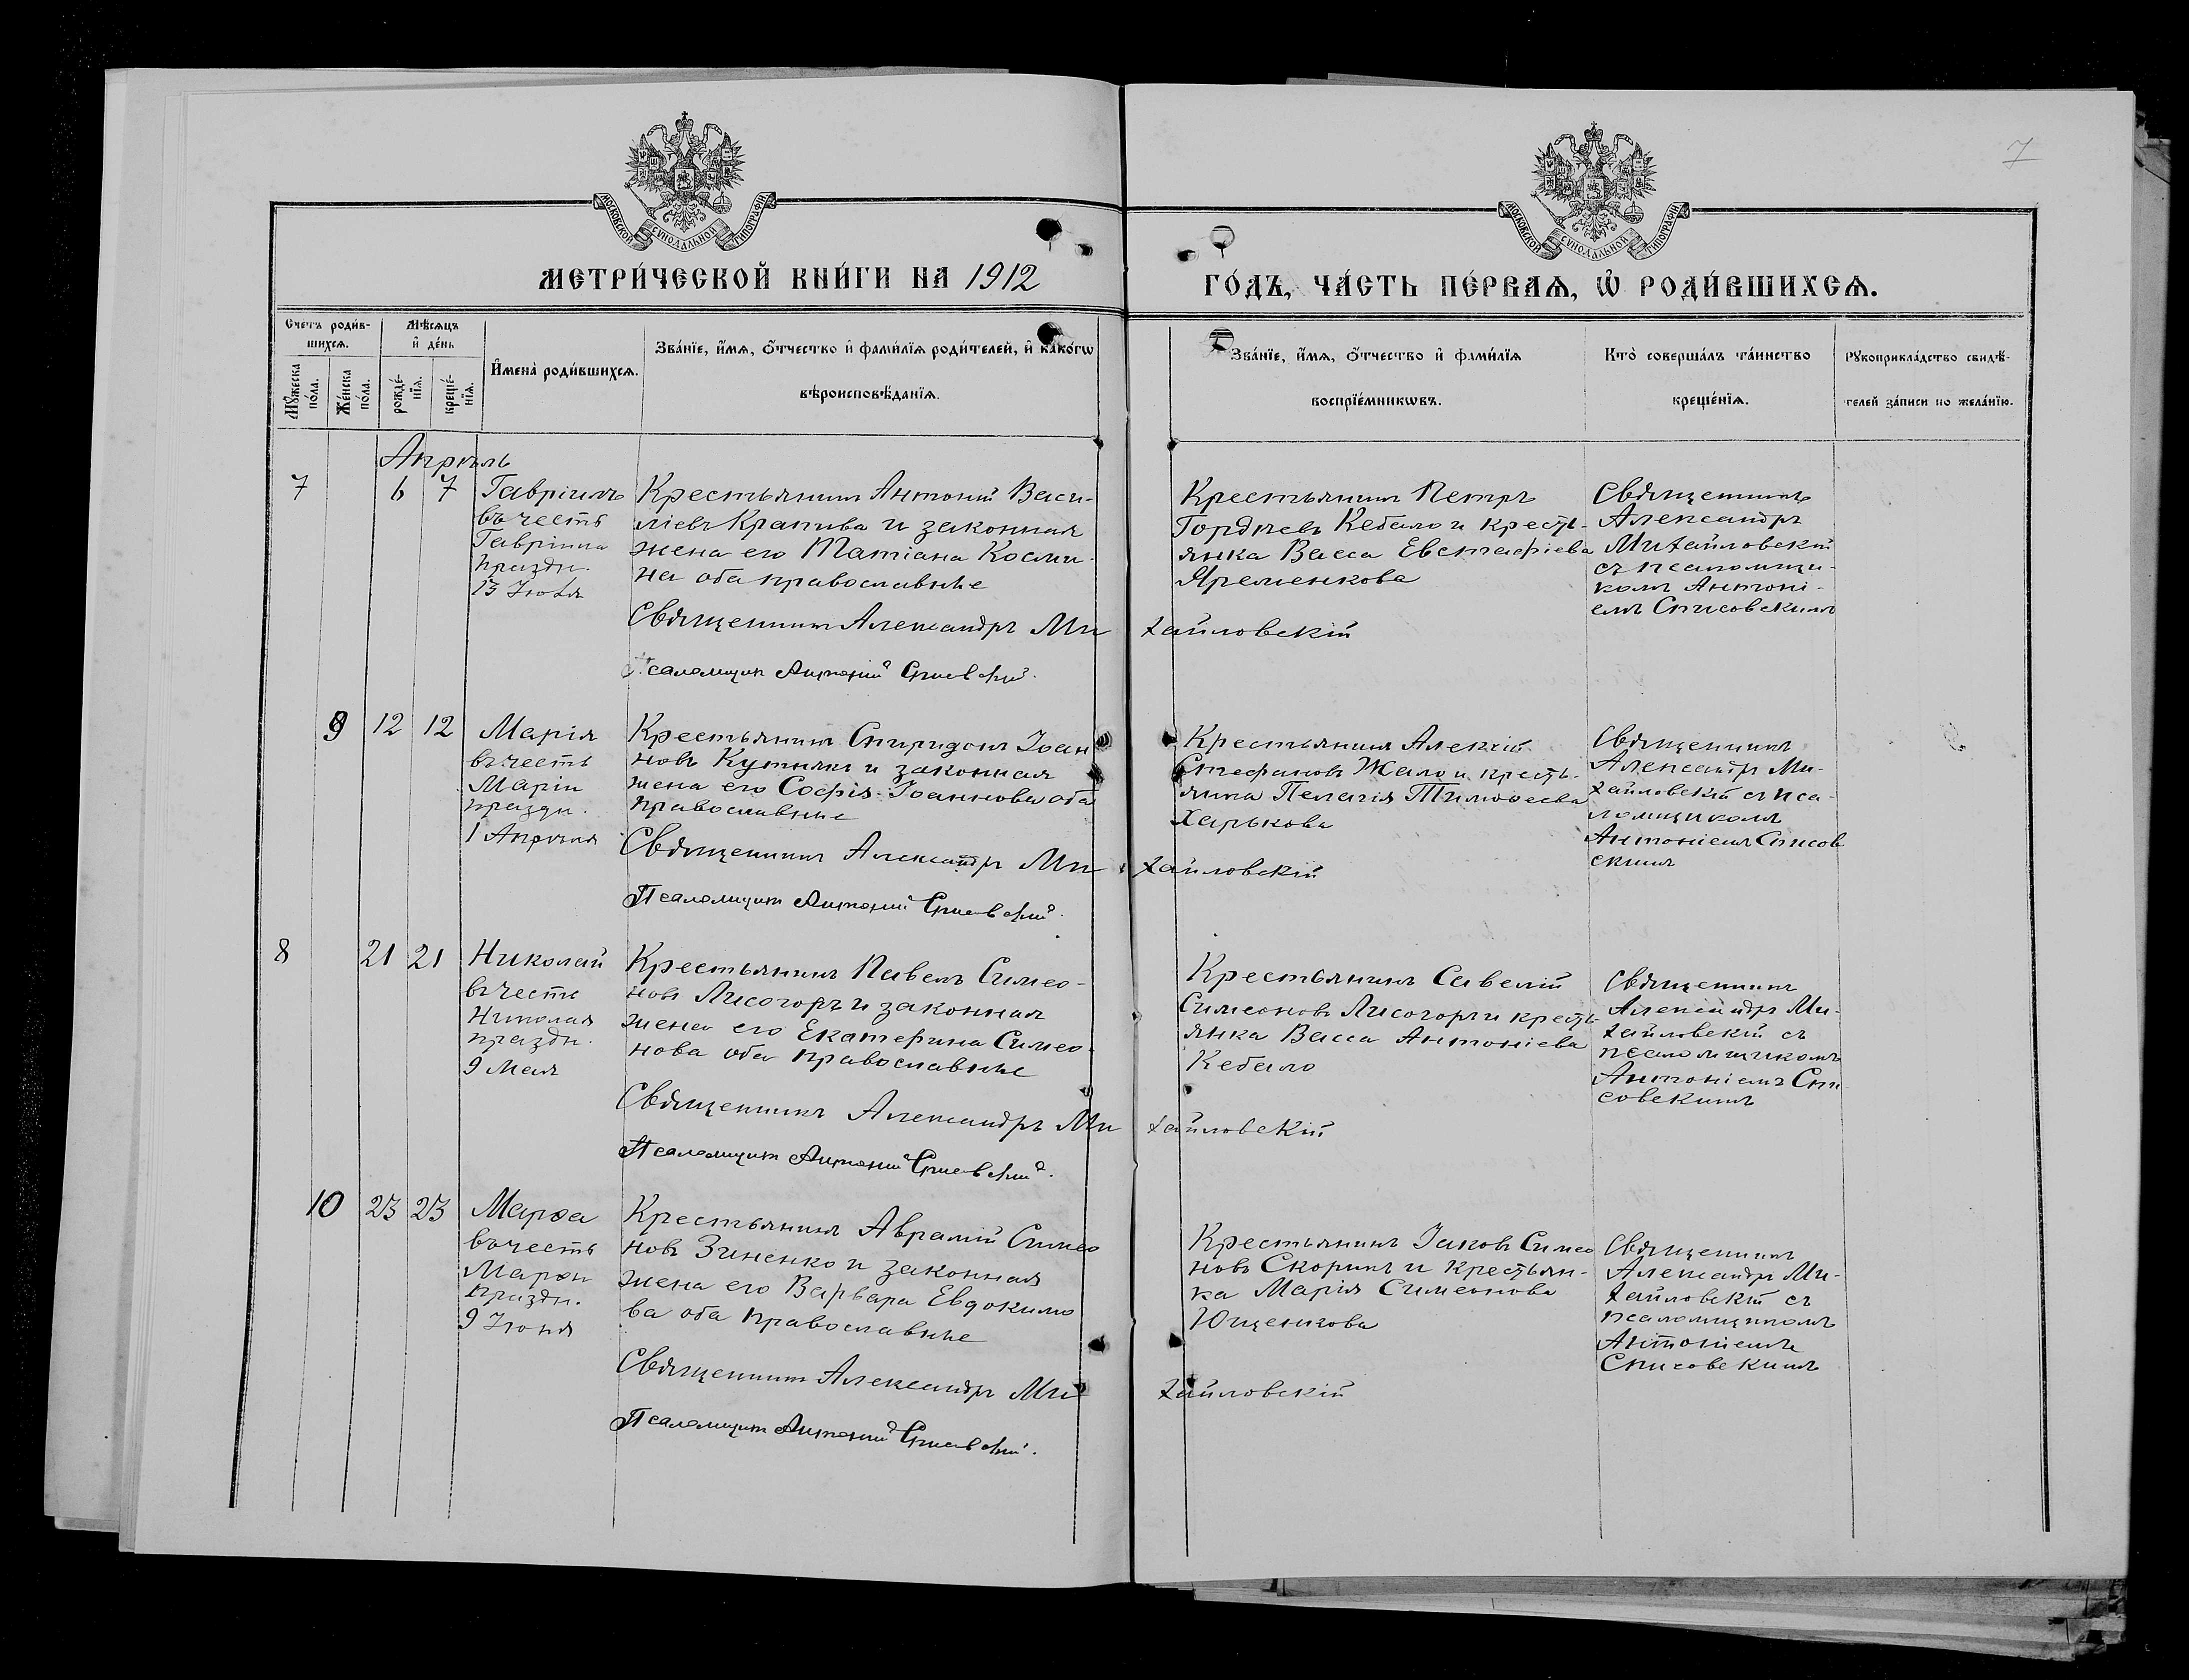 7
МОСКОВСКОЙ СѴНОДАЛЬНОЙ ТИПОГРАФІИ
МОСКОВСКОЙ СѴНОДАЛЬНОЙ ТИПОГРАФІИ
МЕТРИ́ЧЕСКОЙ КНИ́ГИ НА 1912
ГО́ДЪ, ЧА́СТЬ ПЕ́РВАѦ, Ѡ҆ РОДИ́ВШИХСѦ.
Счетъ роди́в-
шихсѧ.
Мꙋ́жеска по́ла.
Же́нска по́ла.
Мѣ́сѧцъ
и҆ де́нь
рожде́-
нїѧ.
креще́-
нїѧ.
И҆мена̀ роди́вшихсѧ.
Зва́нїе, и҆́мѧ, ѻ҆́тчество и҆ фами́лїѧ роди́телей, и҆ како́гѡ
вѣроисповѣ́данїѧ.
Зва́нїе, и҆́мѧ, ѻ҆́тчество и҆ фами́лїѧ
воспрїе́мникѡвъ.
Кто̀ соверша́лъ та́инство
креще́нїѧ.
Рꙋкоприкла́дство свидѣ́-
телей за́писи по жела́нїю.
Апрѣль
7
6
7
Гавріилъ
въ честь
Гавріила
праздн.
13 Іюля
Крестьянинъ Антоній Васи-
ліевъ Крапива и законная
жена его Татіана Косми-
на оба православные
Священникъ Александръ Ми
хайловскій
Псаломщикъ Антоній Списовскій.
Крестьянинъ Петръ
Гордѣевъ Кебало и кресть-
янка Васса Евстафіева
Яременкова
Священникъ
Александръ
Михайловскій
съ псаломщи-
комъ Антоні-
емъ Списовскимъ
9
12
12
Марія
въ честь
Маріи
праздн.
1 Апрѣля
Крестьянинъ Спиридонъ Іоан
новъ Кутнякъ и законная
жена его Софія Іоаннова оба
православные
Священникъ Александръ Ми
хайловскій
Псаломщикъ Антоній Списовскій.
Крестьянинъ Алексій
Стефановъ Жало и кресть-
янка Пелагія Тимоѳеева
Харькова
Священникъ
Александръ Ми-
хайловскій съ пса-
ломщикомъ
Антоніемъ Списов
скимъ
8
21
21
Николай
въ честь
Николая
праздн.
9 Мая
Крестьянинъ Павелъ Симео-
новъ Лисогоръ и законная
жена его Екатерина Симео-
нова оба православные
Священникъ Александръ Ми
хайловскій
Псаломщикъ Антоній Списовскій.
Крестьянинъ Савелій
Симеоновъ Лисогоръ и кресть-
янка Васса Антоніева
Кебало
Священникъ
Александръ Ми-
хайловскій съ
псаломщикомъ
Антоніемъ Спи-
совскимъ
10
23
23
Марѳа
въ честь
Марѳы
праздн.
9 Іюня
Крестьянинъ Аврамій Симео
новъ Зиненко и законная
жена его Варвара Евдокимо
ва оба православные
Священникъ Александръ Ми
хайловскій
Псаломщикъ Антоній Списовскій.
Крестьянинъ Іаковъ Симео
новъ Скорикъ и крестьян-
ка Марія Симеонова
Ющенкова
Священникъ
Александръ Ми-
хайловскій съ
псаломщикомъ
Антоніемъ
Списовскимъ